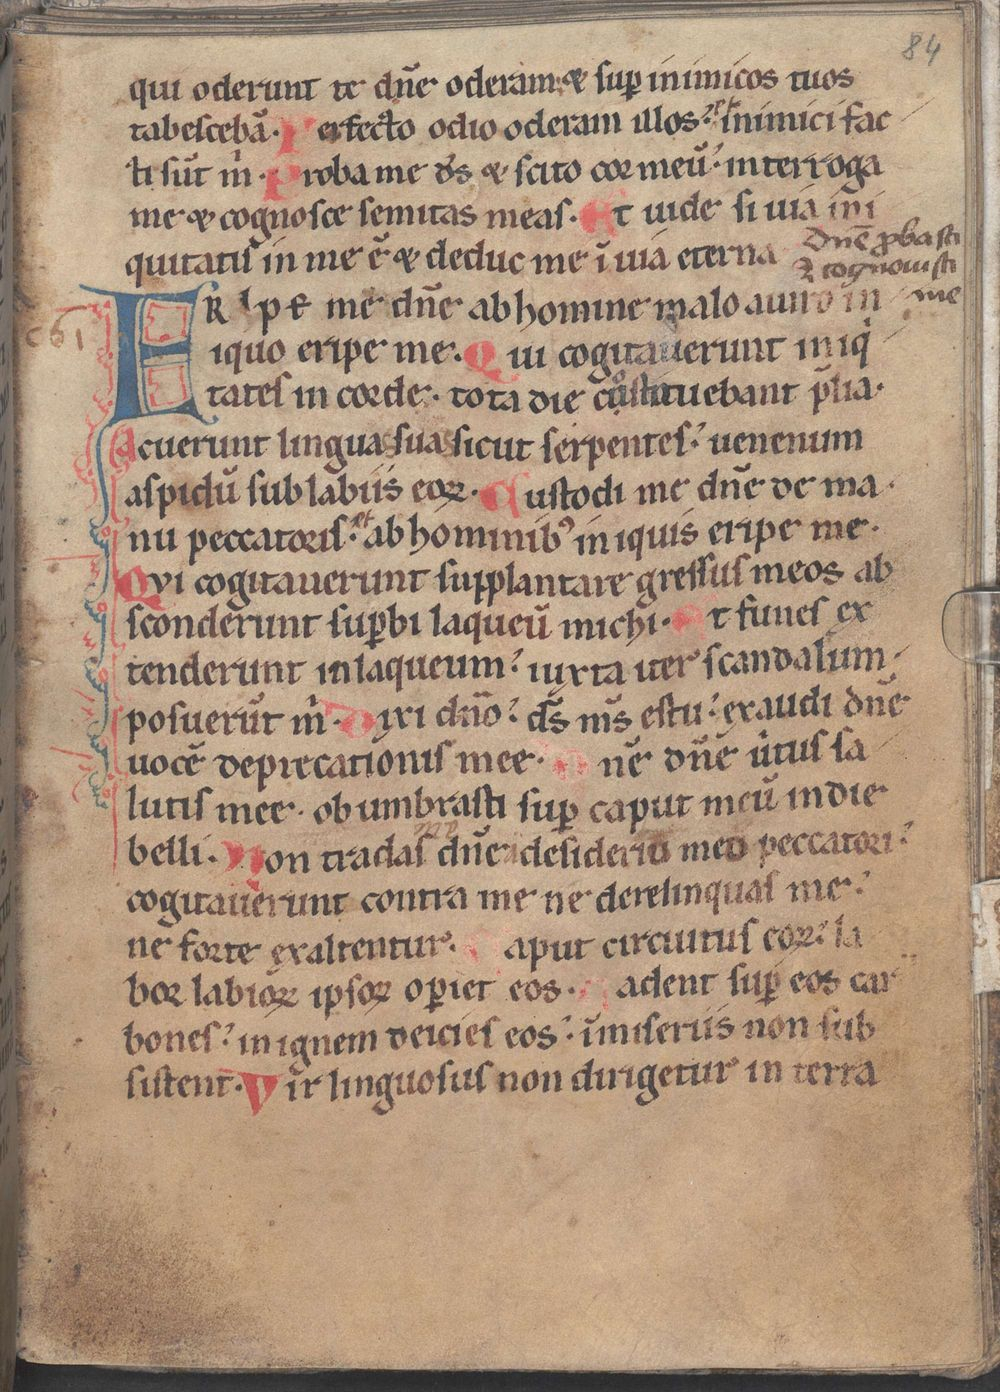 84
qui oderunt te dn̄e oderam & sup̄ inimicos tuos
tabescebā. Perfecto odio oderam illos: et inimici fac
ti sūt m̄. Proba me ds̄ & scito cor meū: interroga
me & cognosce semitas meas. Et uide si uia ini
quitatis in me ē & deduc me ī uiā eterna
dn̄e ꝓbasti
& cognouisti
me
ERIPE me dn̄e ab homine malo a uiro in
iquo eripe me. Qui cogitauerunt iniq
tates in corde. tota die cōstituebant p̄lia.
Acuerunt lingua sua sicut serpentes: uenenum
aspidū sub labiis eoꝝ. Custodi me dn̄e de ma
nu peccatoris: et ab hominibꝰ iniquis eripe me.
Qvi cogitauerunt supplantare gressus meos ab
sconderunt sup̄bi laqueū michi. Et funes ex
tenderunt in laqueum: iuxta iter scandalum
posuerūt m̄. Dixi dn̄o: ds̄ ms̄ es tu: exaudi dn̄e
uocē deprecationis mee. Dn̄e dn̄e ūtus sa
lutis mee. obumbrasti sup̄ caput meū in die
belli. Non tradas dn̄e a desiderio meo peccatori:
cogitauerunt contra me ne derelinquas me:
ne forte exaltentur. Caput circuitus eoꝝ: la
bor labioꝝ ipsoꝝ op̄iet eos. Cadent sup̄ eos car
bones: in ignem deicies eos: ī miseriis non sub
sistent. Vir linguosus non dirigetur in terra